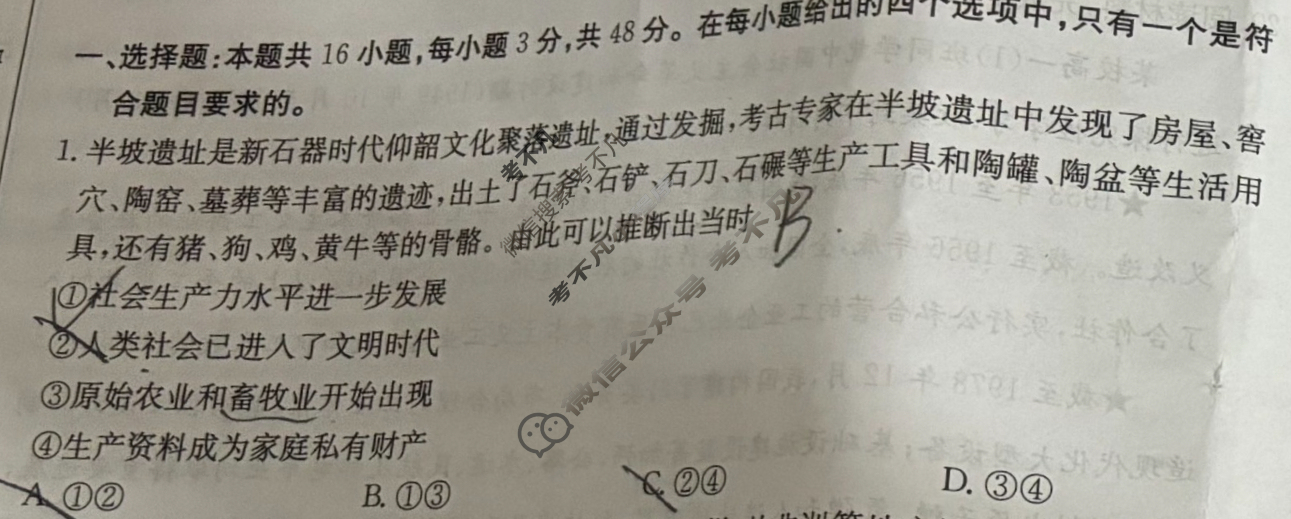 一、选择题:本题共 16 小题,每小题 3 分,共 48 分。在每小题给出的四个选项中,只有一个是符
合题目要求的。
1. 半坡遗址是新石器时代仰韶文化聚落遗址,通过发掘,考古专家在半坡遗址中发现了房屋、窖
穴、陶窑、墓葬等丰富的遗迹,出土了石斧、石铲、石刀、石碾等生产工具和陶罐、陶盆等生活用
具,还有猪、狗、鸡、黄牛等的骨骼。由此可以推断出当时 B
①社会生产力水平进一步发展
②人类社会已进入了文明时代
③原始农业和畜牧业开始出现
④生产资料成为家庭私有财产
A. ①② B. ①③ C. ②④ D. ③④
考不凡
微信搜索考不凡
考不凡
微信公众号 考不凡